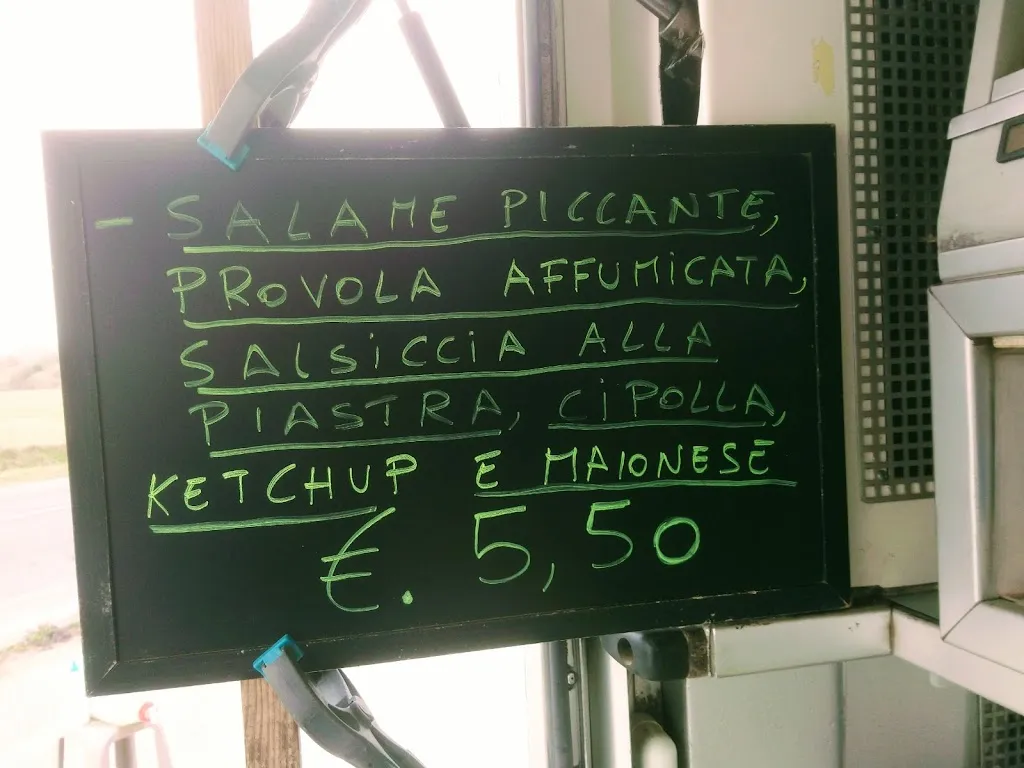 - SALAME PICCANTE,
PROVOLA AFFUMICATA,
SALSiCCiA ALLA
PIASTRA, CiPOLLA,
KETCHUP E MAIONESE
€. 5,50